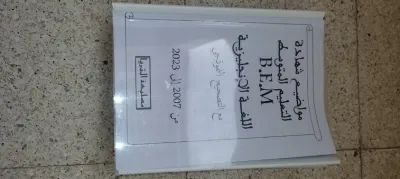 مواضيع شهادة
التعليم المتوسط
B.E.M
اللغة الإنجليزية
مع التصحيح النموذجي
من 2007 إلى 2023